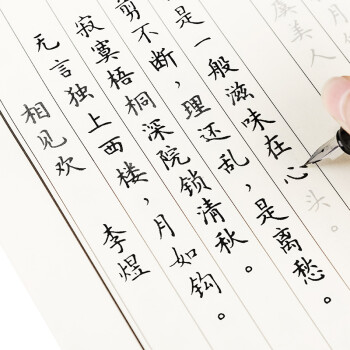 相见欢 李煜
无言独上西楼，月如钩。
寂寞梧桐深院锁清秋。
剪不断，理还乱，是离愁。
是一般滋味在心头。
虞美人